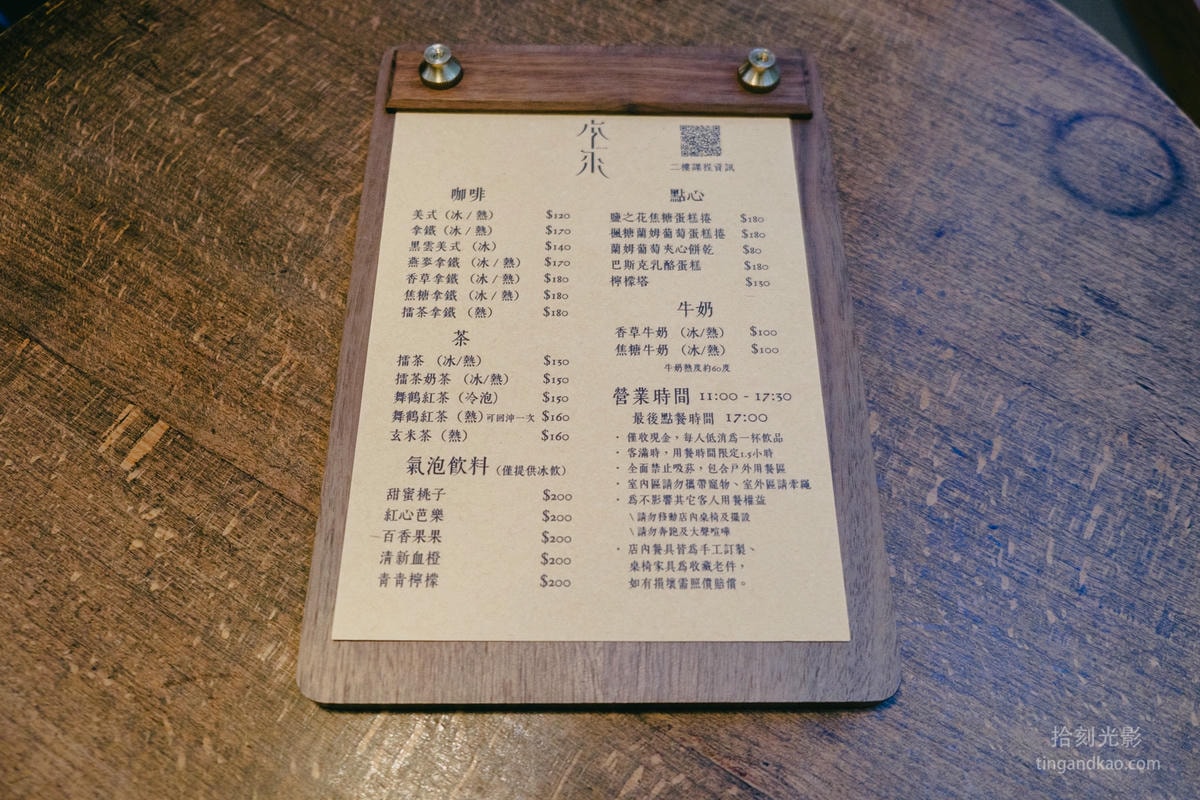 二樓課程資訊
咖啡
美式（冰 / 熱） $120
拿鐵（冰 / 熱） $170
黑雲美式 （冰） $140
燕麥拿鐵 （冰 / 熱） $170
香草拿鐵 （冰 / 熱） $180
焦糖拿鐵 （冰 / 熱） $180
擂茶拿鐵 （熱） $180
茶
擂茶 （冰/熱） $130
擂茶奶茶 （冰/熱） $150
舞鶴紅茶 （冷泡） $150
舞鶴紅茶 （熱）可回沖一次 $160
玄米茶 （熱） $160
氣泡飲料（僅提供冰飲）
甜蜜桃子 $200
紅心芭樂 $200
百香果果 $200
清新血橙 $200
青青檸檬 $200
點心
鹽之花焦糖蛋糕捲 $180
楓糖蘭姆葡萄蛋糕捲 $180
蘭姆葡萄夾心餅乾 $80
巴斯克乳酪蛋糕 $180
檸檬塔 $130
牛奶
香草牛奶 （冰/熱） $100
焦糖牛奶 （冰/熱） $100
牛奶熱度約60度
營業時間 11:00 - 17:30
最後點餐時間 17:00
· 僅收現金，每人低消為一杯飲品
· 客滿時，用餐時間限定1.5小時
· 全面禁止吸菸，包含戶外用餐區
· 室內區請勿攜帶寵物、室外區請牽繩
· 為不影響其它客人用餐權益
\ 請勿移動店內桌椅及擺設
\ 請勿奔跑及大聲喧嘩
· 店內餐具皆為手工訂製、
桌椅家具為收藏老件，
如有損壞需照價賠償。
拾刻光影
tingandkao.com